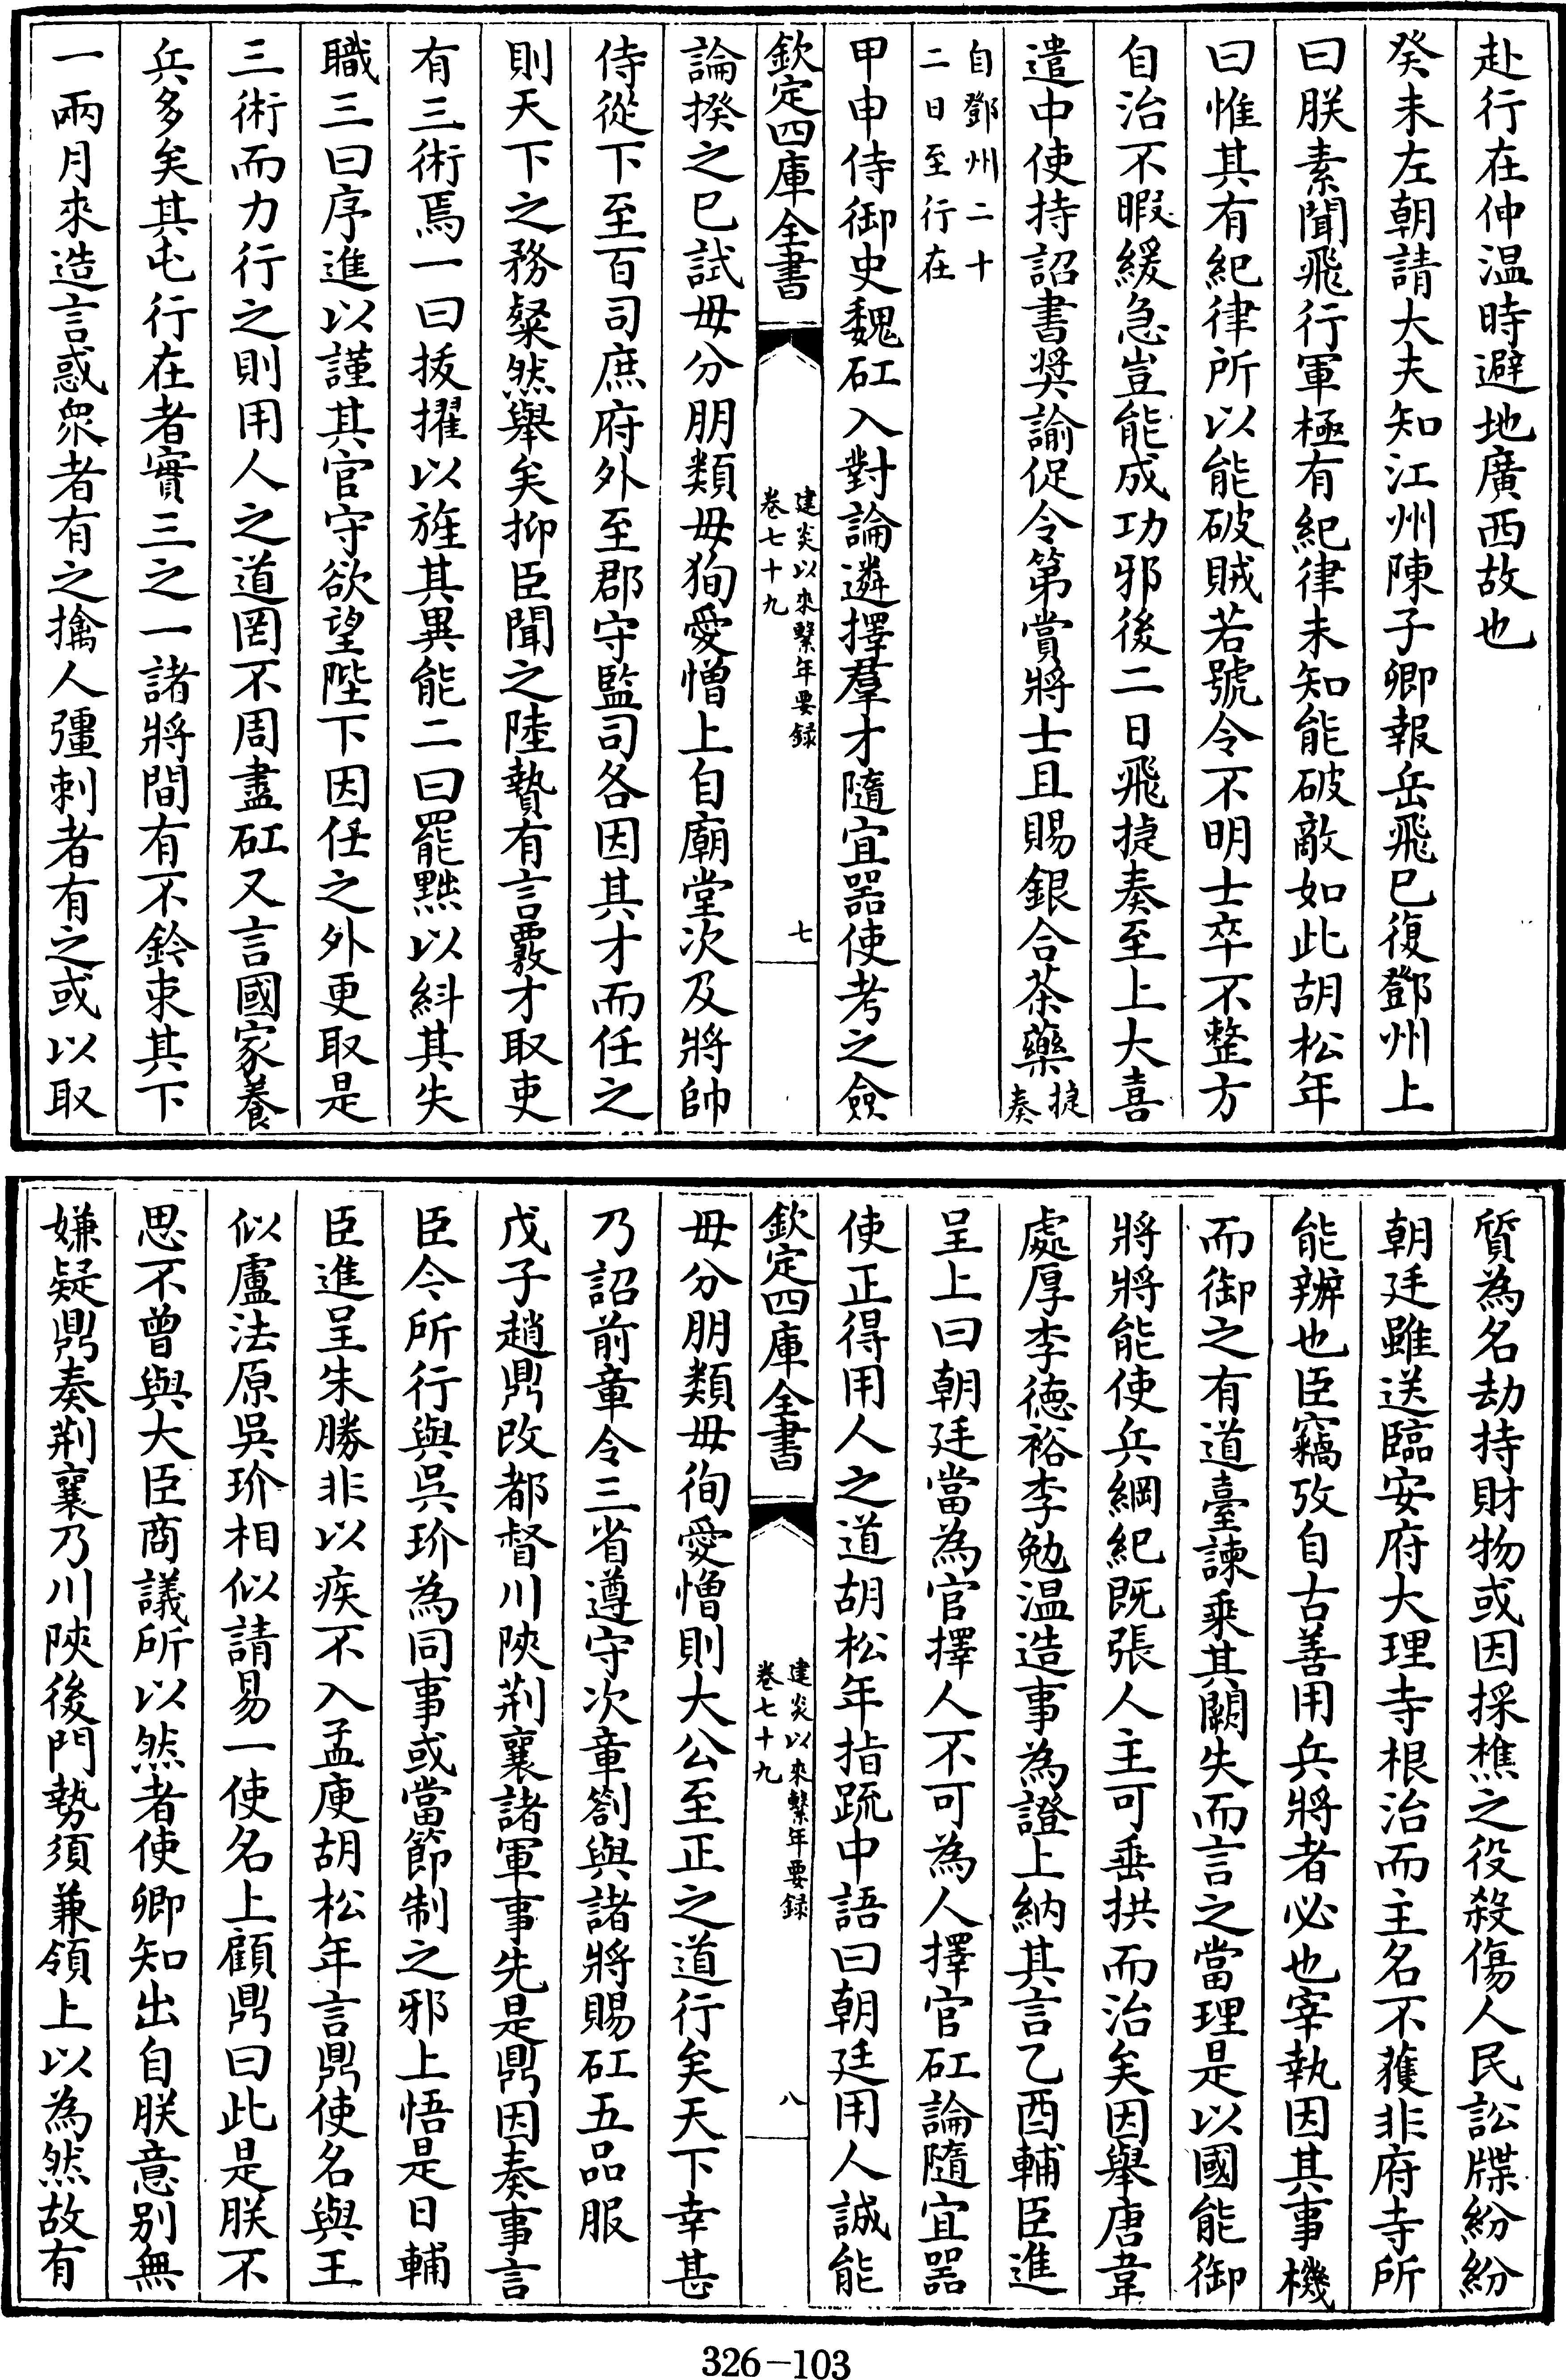 赴行在仲温時避地廣西故也
癸未左朝請大夫知江州陳子卿報岳飛已復鄧州上
曰朕素聞飛行軍極有紀律未知能破敵如此胡松年
曰惟其有紀律所以能破賊若號令不明士卒不整方
自治不暇緩急豈能成功邪後二日飛捷奏至上大喜
遣中使持詔書奬諭促令第賞將士且賜銀合茶藥捷奏
自鄧州二十
二日至行在
甲申侍御史魏矼入對論遴擇羣才隨宜器使考之僉
欽定四庫全書
建炎以來繫年要錄
卷七十九
七
論揆之已試毋分朋類毋狥愛憎上自廟堂次及將帥
侍從下至百司庶府外至郡守監司各因其才而任之
則天下之務粲然舉矣抑臣聞之陸贄有言覈才取吏
有三術焉一曰拔擢以旌其異能二曰罷黜以糾其失
職三曰序進以謹其官守欲望陛下因任之外更取是
三術而力行之則用人之道罔不周盡矼又言國家養
兵多矣其屯行在者實三之一諸將間有不鈐束其下
一兩月來造言惑衆者有之擒人彊刺者有之或以取
質為名劫持財物或因採樵之役殺傷人民訟牒紛紛
朝廷雖送臨安府大理寺根治而主名不獲非府寺所
能辨也臣竊攷自古善用兵將者必也宰執因其事機
而御之有道臺諫乘其闕失而言之當理是以國能御
將將能使兵綱紀既張人主可垂拱而治矣因舉唐韋
處厚李德裕李勉温造事為證上納其言乙酉輔臣進
呈上曰朝廷當為官擇人不可為人擇官矼論隨宜器
使正得用人之道胡松年指䟽中語曰朝廷用人誠能
欽定四庫全書
建炎以來繫年要錄
卷七十九
八
毋分朋類毋徇愛憎則大公至正之道行矣天下幸甚
乃詔前章令三省遵守次章劄與諸將賜矼五品服
戊子趙鼎改都督川陝荆襄諸軍事先是鼎因奏事言
臣今所行與吳玠為同事或當節制之邪上悟是日輔
臣進呈朱勝非以疾不入孟庾胡松年言鼎使名與王
似盧法原吳玠相似請易一使名上顧鼎曰此是朕不
思不曾與大臣商議所以然者使卿知出自朕意别無
嫌疑鼎奏荆襄乃川陝後門勢須兼領上以為然故有
326-103